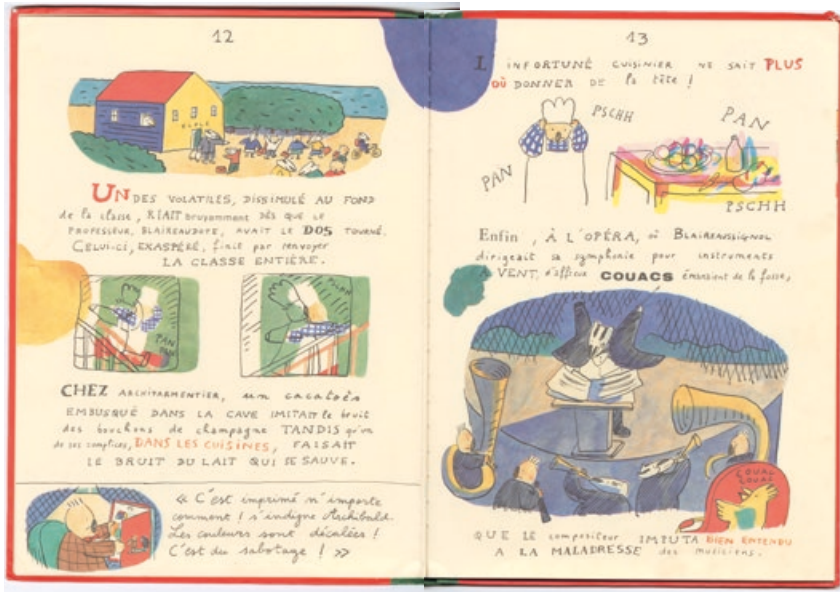 12
ECOLE
UN DES VOLATILES, DISSIMULÉ AU FOND
de la classe, RIAIT bruyamment DÈS QUE LE
PROFESSEUR, BLAIREAUDOTE, AVAIT LE DOS TOURNÉ.
CELUI-CI, EXASPÉRÉ, finit par renvoyer
LA CLASSE ENTIÈRE.
PAN
PAN
PLAN
CHEZ ARCHIPARMENTIER, un cacatoès
EMBUSQUÉ DANS LA CAVE IMITAIT le bruit
des bouchons de champagne TANDIS qu'un
de ses complices, DANS LES CUISINES, FAISAIT
LE BRUIT DU LAIT QUI SE SAUVE.
« C'est imprimé n'importe
comment ! s'indigne Archibald.
Les couleurs sont décalées !
C'est du sabotage ! »
13
L INFORTUNÉ CUISINIER NE SAIT PLUS
OÙ DONNER DE la tête !
PSCHH
PAN
PAN
PSCHH
Enfin, À L'OPÉRA, où BLAIREAUSSIGNOL
dirigeait sa symphonie pour instruments
À VENT, d'affreux COUACS émanaient de la fosse,
COUAC
COUAC
QUE LE compositeur IMPUTA BIEN ENTENDU
A LA MALADRESSE des musiciens.